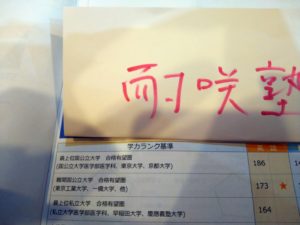 耐咲塾
学力ランク基準
英語
最上位国公立大学 合格有望圏
(国公立大学医学部医学科、東京大学、京都大学)
186
難関国公立大学 合格有望圏
(東京工業大学、一橋大学、他)
173 ★
最上位私立大学 合格有望圏
(私立大学医学部医学科、早稲田大学、慶應義塾大学)
164